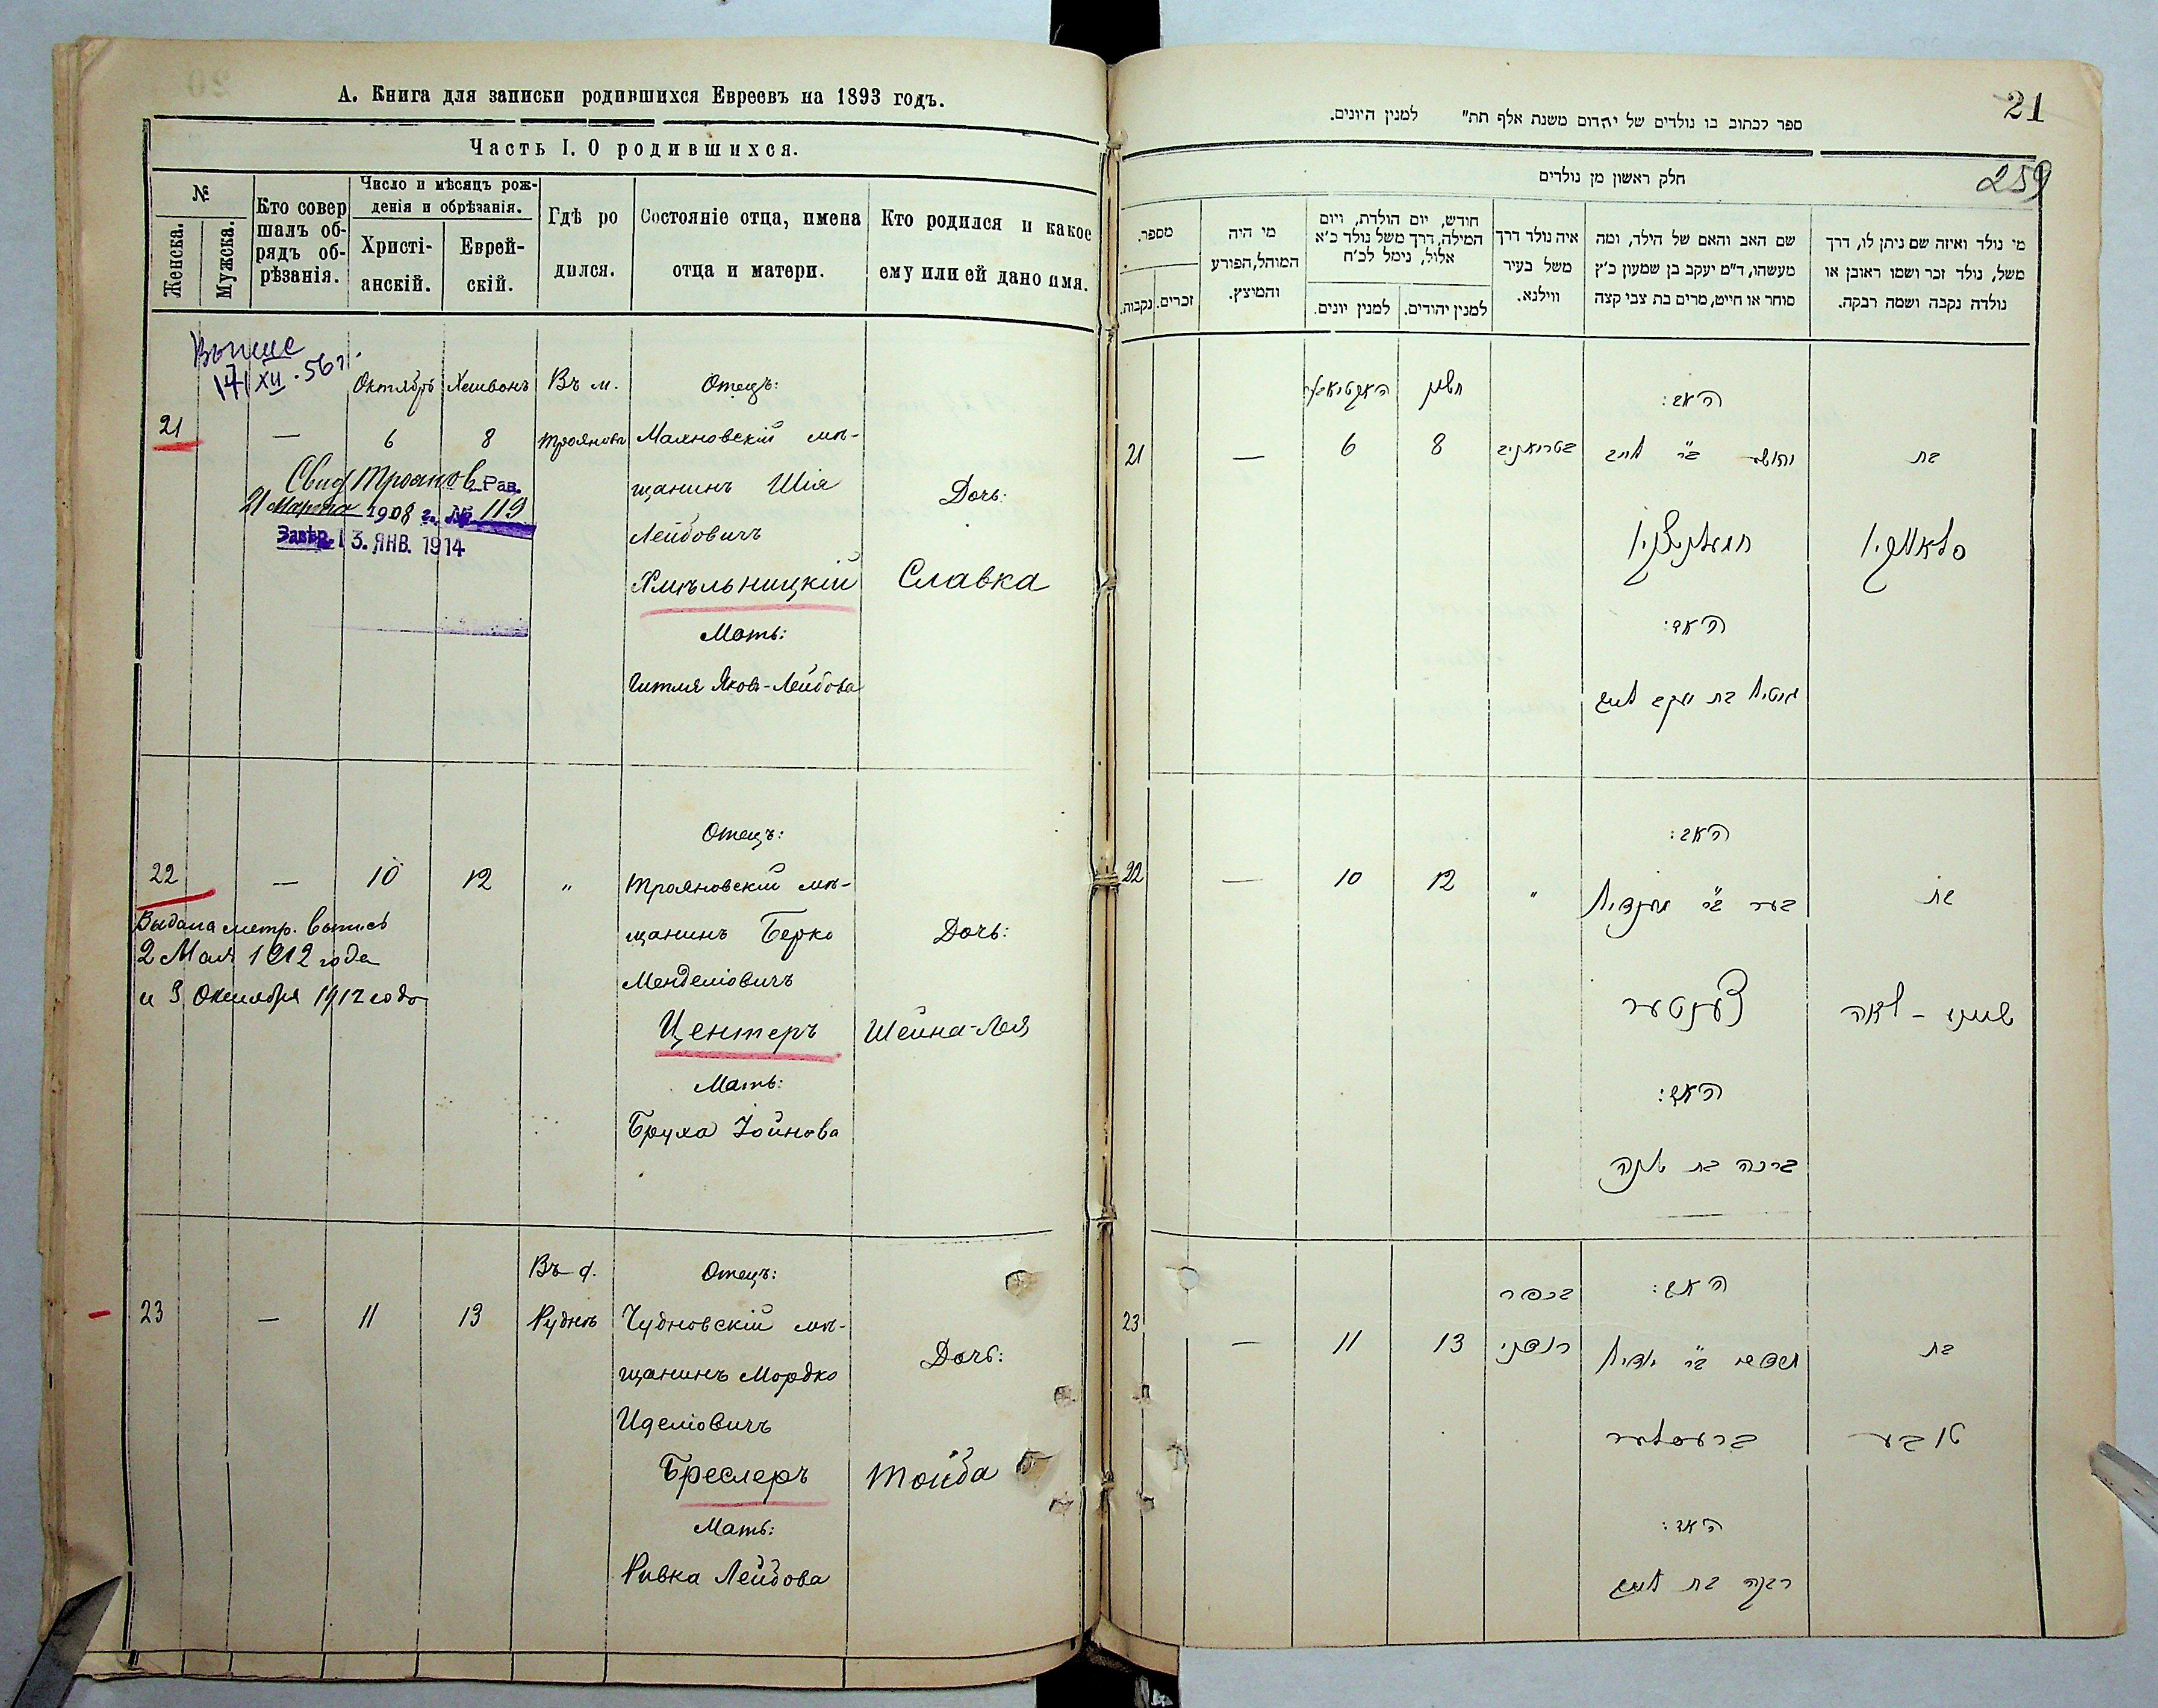 А. Книга для записки родившихся Евреевъ на 1893 годъ.
Часть I. О родившихся.
№
Женска.
Мужска.
Кто совер
шалъ об-
рядъ об-
рѣзанія.
Число и мѣсяцъ рож-
денія и обрѣзанія.
Христі-
анскій.
Еврей-
скій.
Гдѣ ро
дился.
Состояніе отца, имена
отца и матери.
Кто родился и какое
ему или ей дано имя.
17/XII.56 г.
Октябрь Хешвонъ Въ м. Отецъ:
21 — 6 8 Трояновъ
мѣ-
щанинъ Шія
Лейбовичъ
Хмѣльницкій
Мать:
Гитля Яковъ-Лейбова
Дочь:
Славка
Свид Троянов. Рав.
21 Марта 1908 г. № 119
Завѣр. 13. ЯНВ. 1914
Отецъ:
22 — 10 12 „ Трояновскій мѣ-
щанинъ Берко
Менделіовичъ
Центеръ
Мать:
Бруха Іойнова
Дочь:
Шейна-Лея
Выдана метр. выпись
2 Мая 1912 года
и 3 Октября 1912 года
Въ д. Отецъ:
23 — 11 13 Руднѣ Чудновскій мѣ-
щанинъ Мордко
Иделіовичъ
Бреслеръ
Мать:
Ривка Лейбова
Дочь:
Тойба
21
259
ספר לכתוב בו נולדים של יהדום משנת אלף תת" למנין היונים.
חלק ראשון מן נולדים
מספר.
נקבות.
זכרים.
מי היה
המוהל, הפורע
והמיצץ.
חודש, יום הולדת, ויום
המילה, דרך משל נולד כ'א
אלול, נימל לכ'ח
למנין יונים.
למנין יהודים.
איה נולד דרך
משל בעיר
ווילנא.
שם האב והאם של הילד, ומה
מעשהו, ד"מ יעקב בן שמעון כ'ץ
סוחר או חייט, מרים בת צבי קצה
מי נולד ואיזה שם ניתן לו, דרך
משל, נולד זכר ושמו ראובן או
נולדה נקבה ושמה רבקה.
חשון
האב:
21 — 6 8
יהושע ב"ר לייב
בת
האם:
גיטיל בת יעקב לייב
האב:
22 — 10 12 „
בער ב"ר מענדיל
בת
צענטער
שיינע - לאה
האם:
ברכה בת יונה
האב:
בכפר
23 — 11 13 רודני
ב"ר יודיל
בת
ברעסלער
טובע
האם:
רבקה בת לייב